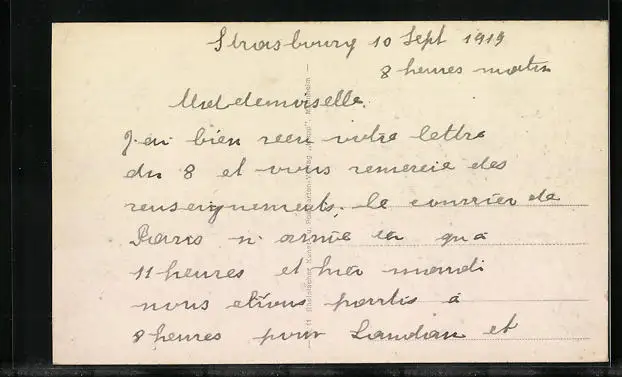 Strasbourg 10 Sept 1919
8 heures matin
Mademoiselle.
J'ai bien recu votre lettre
du 8 et vous remercie des
renseignements. le courrier de
Paris n'arrive ici qu'a
11 heures et hier mardi
nous etions partis à
8 heures pour Landau et
Rheinischer Kunst- u. Postkarten-Verlag Mannheim